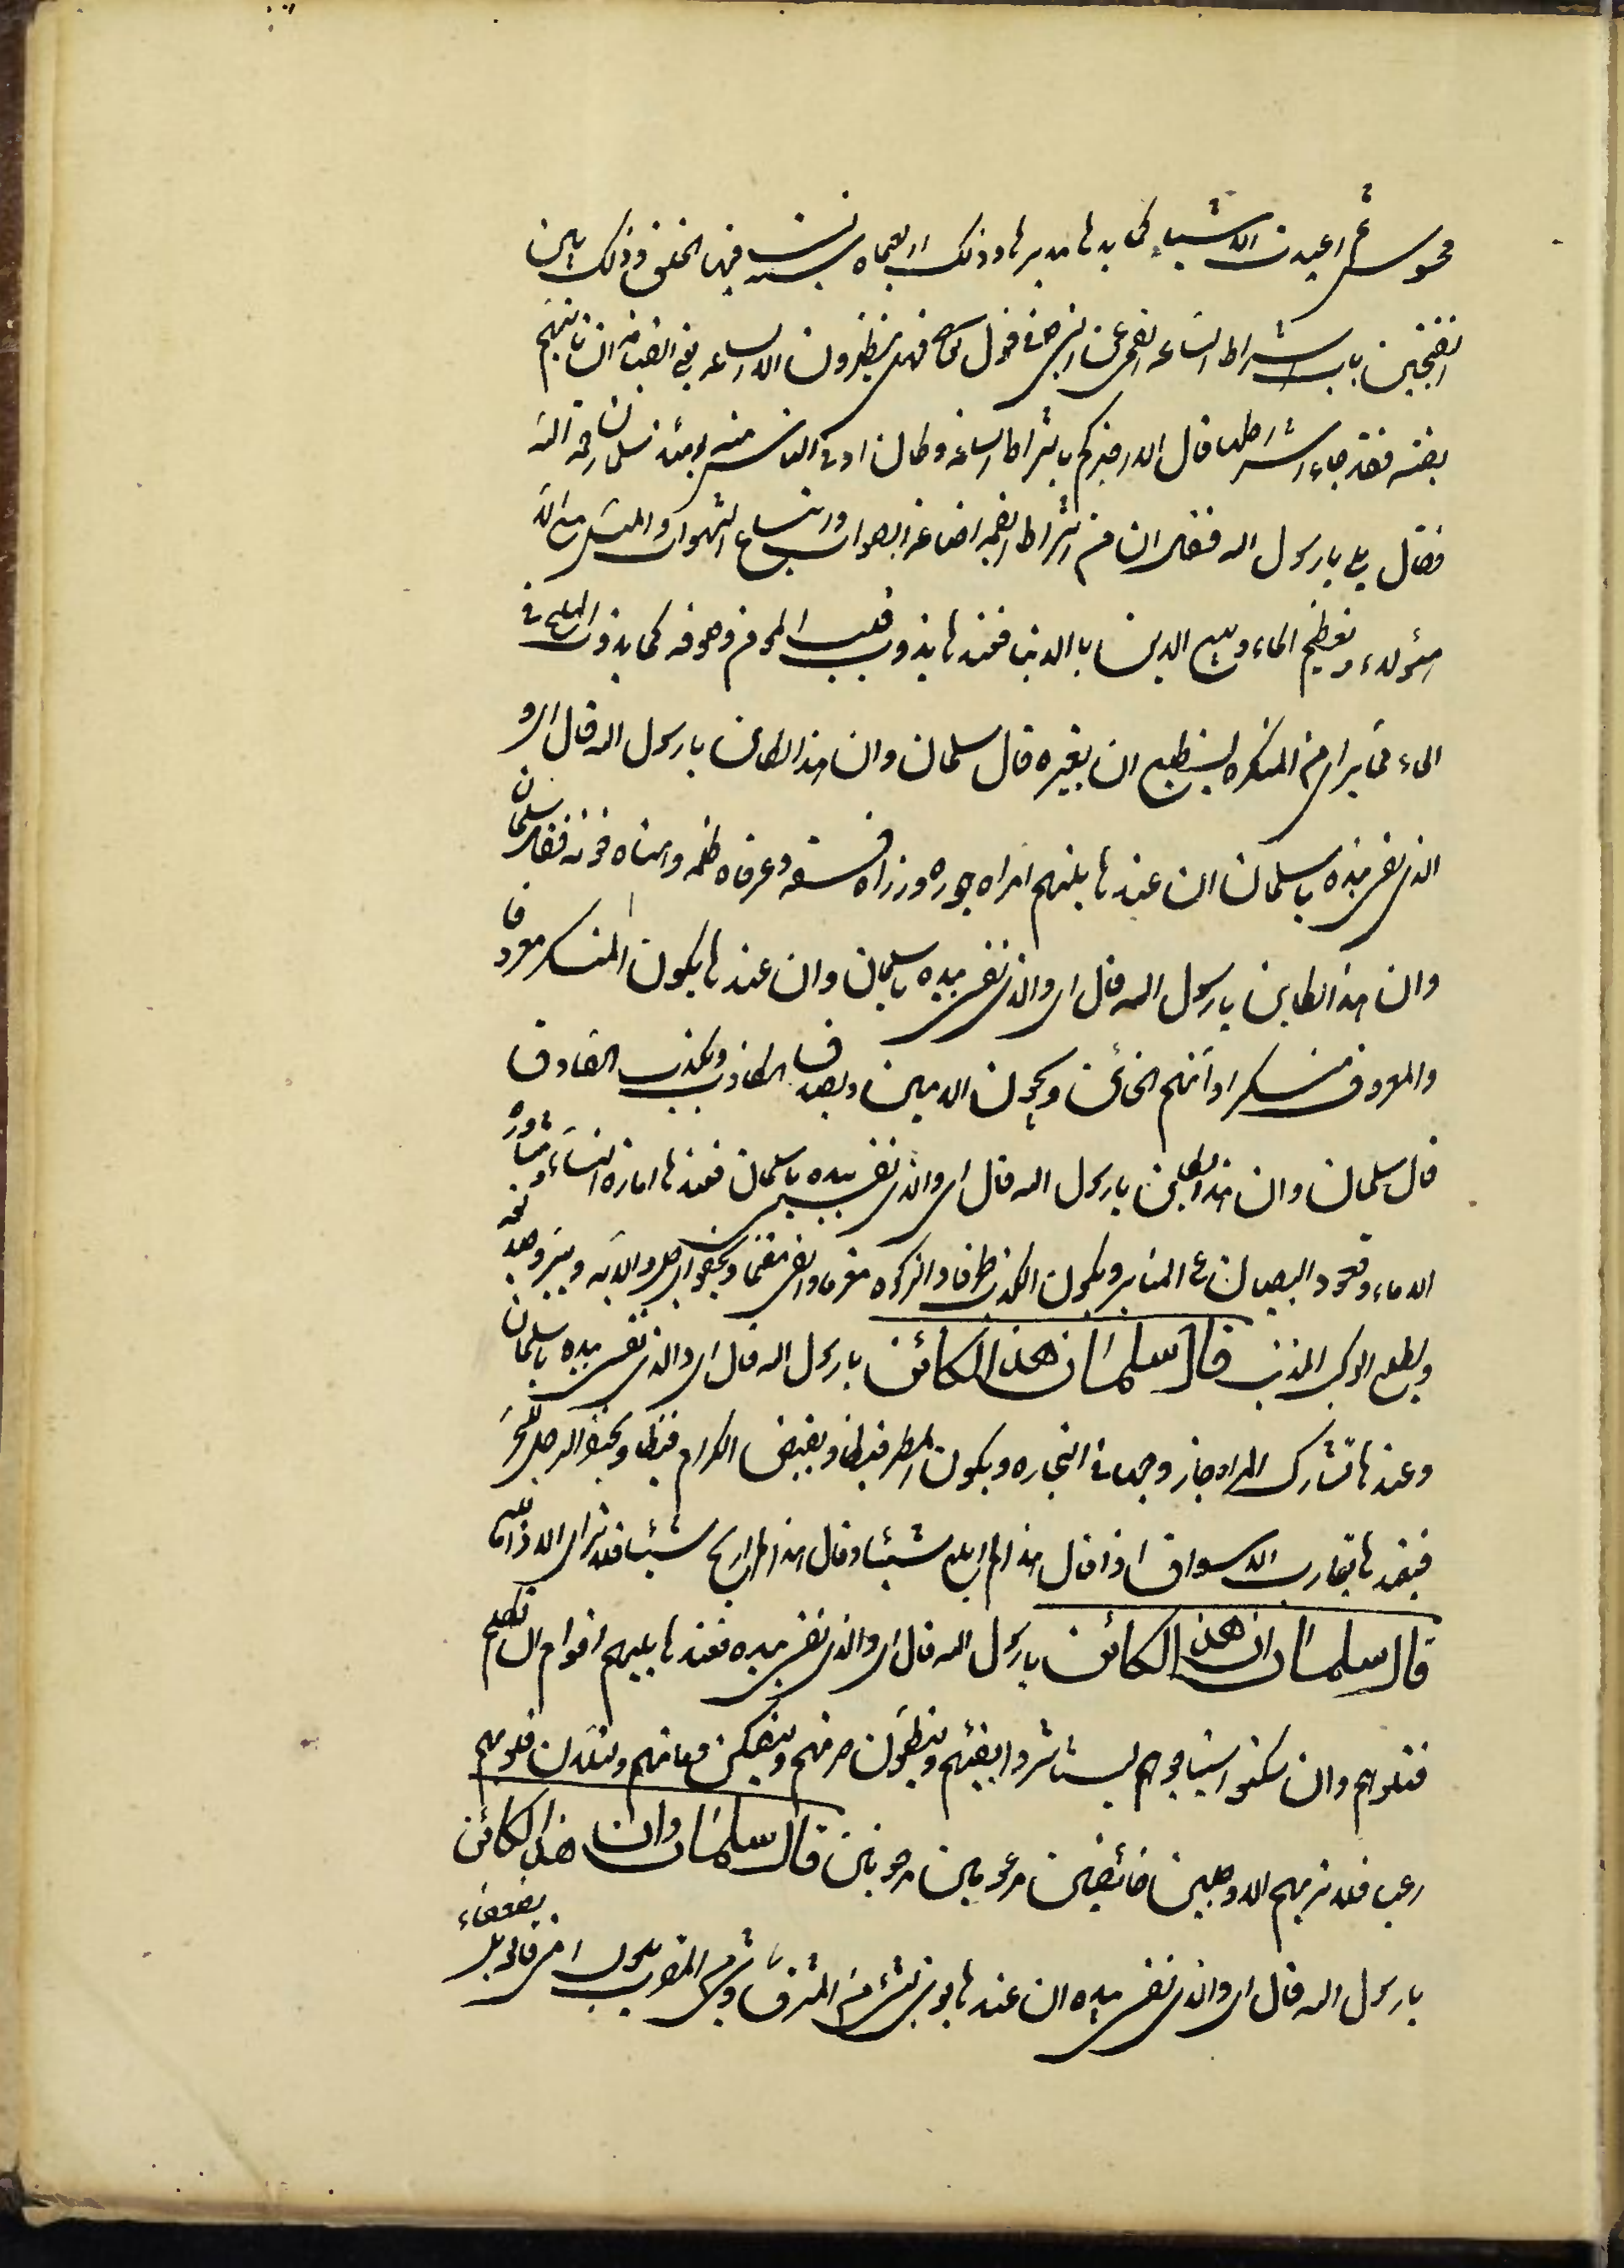 محسوس ثم اعيدت الاشياء كما بدءها مدبرها وذلك اربعماه سنه يسبت فيها الخلق وذلك بين
النفختين باب اشراط الساعه القمى عن النبى ص فى قول الله فهل ينظرون الا الساعه يعنى القيامه ان تاتيهم
بغته فقد جاء اشراطها قال الا اخبركم باشراط الساعه وكان ادنى الناس منه يومئذ سلمان رحمه الله
فقال بلى يا رسول الله فقال ان من اشراط القيمه اضاعه الصلوات واتباع الشهوات والميل مع الا
هواء وتعظيم الماء وبيع الدين بالدنيا فعندها يذوب قلب المؤمن وجوفه كما يذوب الملح فى
الماء مما يرا من المنكر فلا يستطيع ان يغيره قال سلمان وان هذا لكائن يا رسول الله قال اى و
الذى نفسى بيده يا سلمان ان عندها يليهم امراء جوره ووزراء فسقه وعرفاء ظلمه وامناء خونه فقال سلمان
وان هذا لكاين يا رسول الله قال اى والذى نفسى بيده يا سلمان وان عندها يكون المنكر معروفا
والمعروف منكرا وائتمن الخائن ويخون الامين ويصدق الكاذب ويكذب الصادق
قال سلمان وان هذا لكاين يا رسول الله قال اى والذى نفسى بيده يا سلمان فعندها اماره النساء ومشاوره
الاماء وقعود الصبيان على المنابر ويكون الكذب ظرفا والزكوه مغرما والفىء مغنما ويجفو الرجل والديه ويبر صديقه
ويطلع الكوكب المذنب قال سلمان هذا لكائن يا رسول الله قال اى والذى نفسى بيده يا سلمان
وعندها تشارك المراه زوجها فى التجاره ويكون المطر قيظا ويغيض الكرام غيظا ويحتقر الرجل المعسر
فعندها يقارب الاسواق اذا قال هذا لم ابع شيئا وقال هذا لم اربح شيئا فلا ترى الا ذاما لله
قال سلمان ان هذا لكائن يا رسول الله قال اى والذى نفسى بيده فعندها يليهم اقوام ان تكلموا
قتلوهم وان سكتوا استباحوهم ليستاثروا بفيئهم وليطؤن حرمتهم وليسفكن دمائهم ولتملان قلوبهم
رعبا فلا تريهم الا وجلين خائفين مرعوبين مرهوبين قال سلمان وان هذا لكائن
يا رسول الله قال اى والذى نفسى بيده ان عندها يوتى بشىء من المشرق وشىء من المغرب يلون امتى فالويل لضعفاء